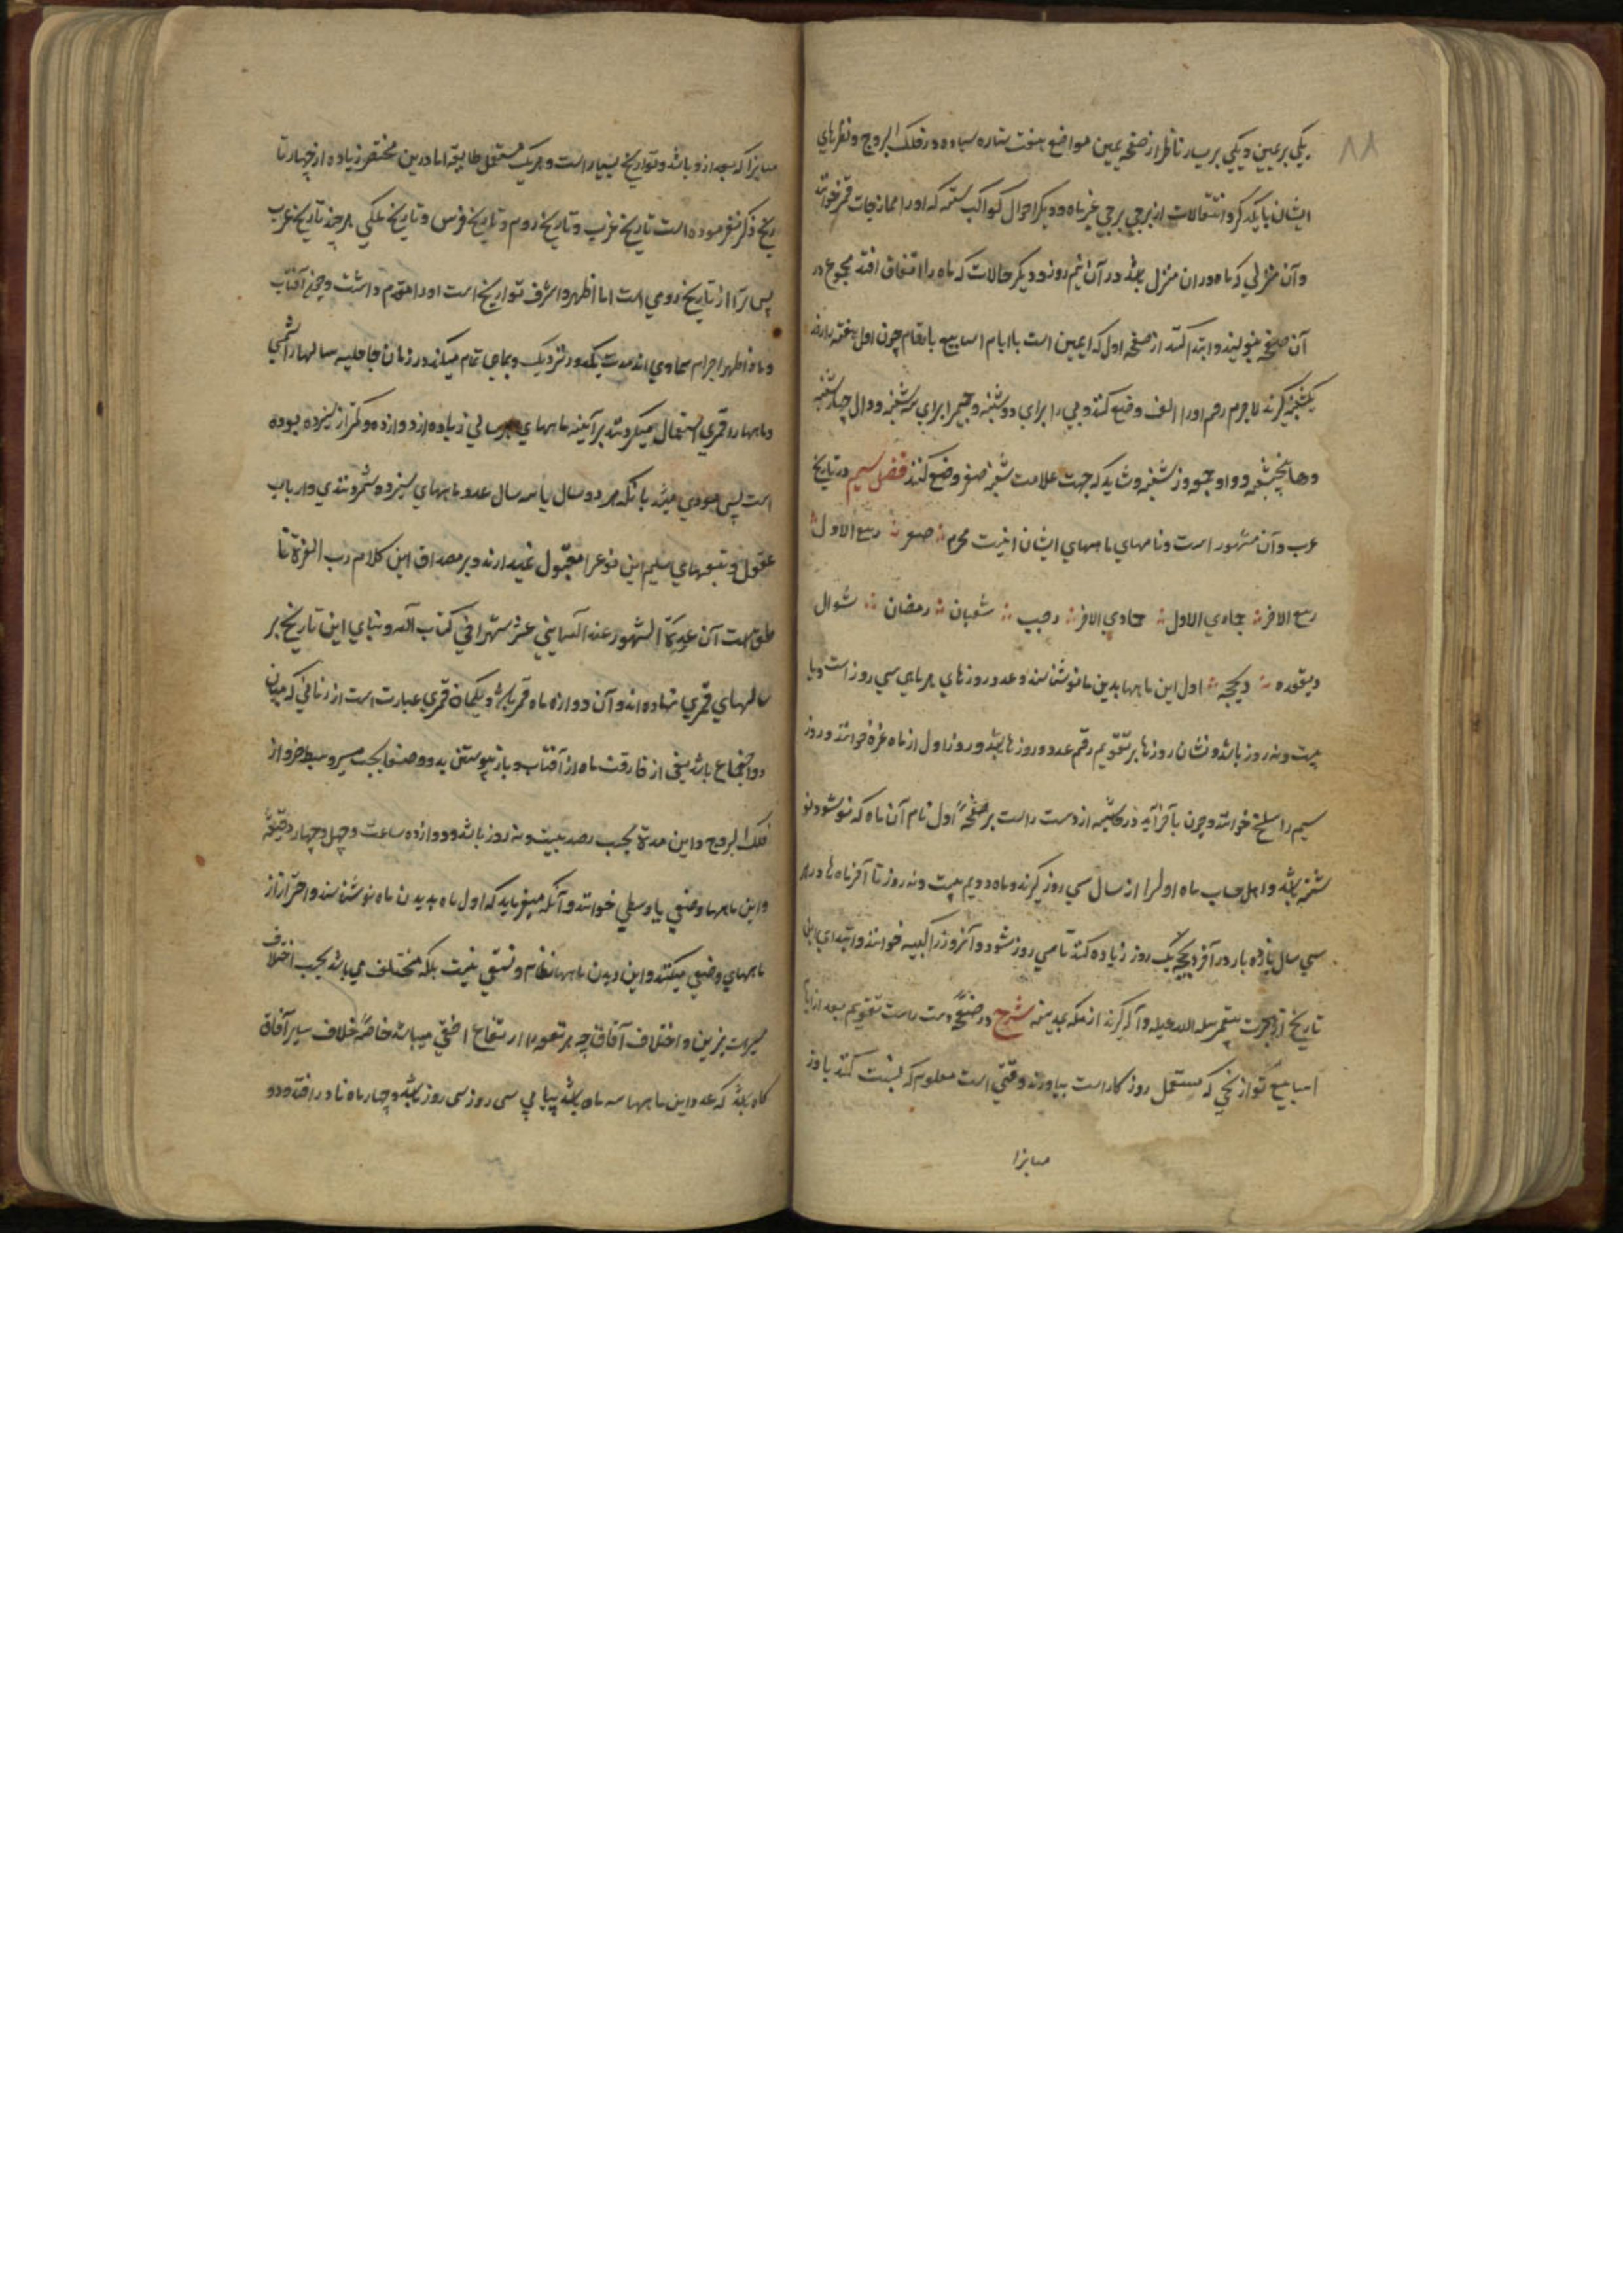 ٨٨
یکی بر یمین و یکی بر یسار ناظر از صفحه یمین مواضع هفت ستاره سیاره در فلک البروج و نظرهای
ایشان با یکدیگر و انتقالات از برجی برجی غیر ماه و دیگر احوال کواکب سته که او را ممازجات قمر خوانند
و آن منزلی که ماه در ان منزل باشد در آن نیم روز و دیگر حالات که ماه را اتفاق افتد مجموع در
آن صفحه بنویسند و ابتدا کنند از صفحه اول که ایمین است با ایام اسابیع بارقام چون اول هفته را از
یکشنبه گیرند لاجرم رقم او را الف وضع کنند و بی را برای دوشنبه و جیم را برای سه شنبه و دال چهارشنبه
و ها پنجشنبه و واو جمعه و ز شنبه و شاید که جهت علامت شنبه صفر وضع کنند فصل سیم در تاریخ
عرب و آن مشهور است و نامهای ماههای ایشان اینست محرم صفر ربیع الاول
ربیع الاخر جمادی الاول جمادی الاخر رجب شعبان رمضان شوال
ذیقعده ذیحجه اول این ماهها بدیدن ماه نو شناسند و عدد روزهای هر ماهی سی روز است و یا
بیست و نه روز باشد و نشان روزها بر تقویم رقم عدد روزها باشد و روز اول از ماه غره خوانند و روز
سیم را سلخ خوانند و چون بآخر آید در حاشیه از دست راست بر صفحه اول نام آن ماه که نو شود نو
شته باشد و اهل حساب ماه اول را از سال سی روز گیرند و ماه دویم بیست و نه روز تا آخر ماه ها و در هر
سی سال یازده بار در آخر ذیحجه یک روز زیاده کنند تا سی روز شود و آنروز را کبیسه خوانند و ابتدای این
تاریخ از هجرت پیغمبر صلی الله علیه و آله گیرند از مکه بمدینه شرح در صفحه دست راست تقویم بعد از ایام
اسابیع تواریخی که مستعمل روزگار است بیاورند وقتی است معلوم که نسبت کنند با و ز
مانرا
مانرا که بعد ازو باشد و تواریخ بسیار است و هر یک مستعمل طایفه اما درین مختصر زیاده از چهار تا
ریخ ذکر نفرموده است تاریخ عرب و تاریخ روم و تاریخ فرس و تاریخ ملکی هر چند تاریخ عرب
پس تر از تاریخ رومی است اما اظهر و اشرف تواریخ است او را مقدم داشت و چون آفتاب
و ماه اظهر اجرام سماوی اند مدت یکدور نزدیک و بجای تمام میکند در زمان جاهلیه سالها را شمسی
و ماهها را قمری استعمال میکردند هر آینه ماههای هر سالی زیاده از دوازده و کمتر از سیزده بوده
است پس مودی میشد بانکه هر دو سال یا سه سال عدد ماههای سیزده شمردندی و ارباب
عقول و طبعهای سلیم این نوع را مقبول نمیدارند و بر مصداق این کلام رب العزة نا
طق است آن عدة الشهور عند الله اثنی عشر شهرا فی کتاب الله و بنای این تاریخ بر
سالهای قمری نهاده اند و آن دوازه ماه قمر باشد و یکماه قمری عبارت است از زمانی که میان
دو اجتماع باشد یعنی از مفارقت ماه از آفتاب و باز پیوستن بدو و وصف بحسب سیر وسط هر دو از
فلک البروج و این مدة بحسب رصد بیست و نه روز باشد و دوازده ساعت و چهل و چهار دقیقه
و این ماهها وضعی یا وسطی خوانند و آنکه میفرماید که اول ماه بدیدن ماه نو شناسند و احتراز از
ماههای وضعی میکنند و این دیدن ماهها نظام و نسقی نیست بلکه مختلف می باشد بحسب اختلاف
مسیرات نیرین و اختلاف آفاق چه هر بقعه را ارتفاع افقی میباشد خاصة خلاف سایر آفاق
گاه باشد که عد و این ماهها سه ماه باشد پیاپی سی روز سی روز باشد و چهار ماه نادر افتد و دو